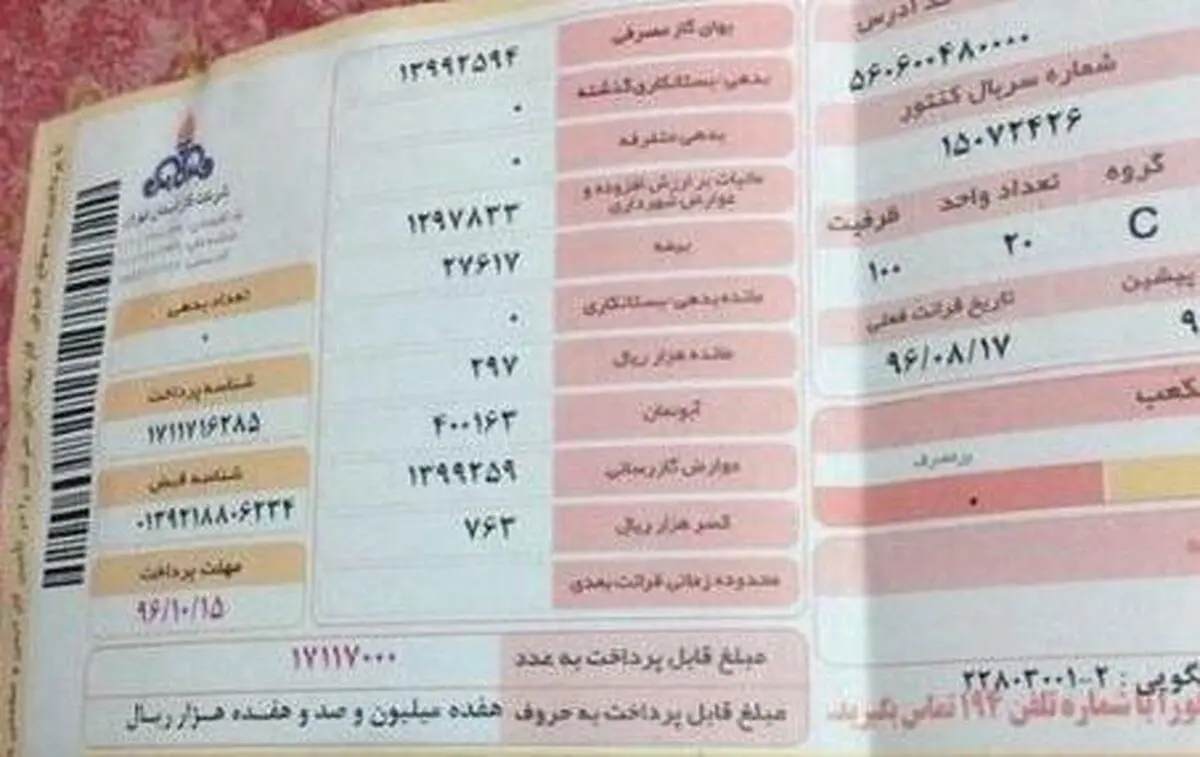 کد آدرس
۵۶۰۶۰۰۴۸۰۰۰۰
شماره سریال کنتور
۱۵۰۷۲۴۲۶
گروه تعداد واحد ظرفیت
C ۲۰ ۱۰۰
پیشین تاریخ قرائت فعلی
۹۶/۰۸/۱۷
بهای گاز مصرفی ۱۳۹۹۲۵۹۴
بدهی، بستانکاری گذشته ۰
بدهی متفرقه ۰
مالیات بر ارزش افزوده و عوارض شهرداری ۱۳۹۷۸۳۳
بیمه ۲۷۶۱۷
مانده بدهی، بستانکاری ۰
مانده هزار ریال ۲۹۷
آبونمان ۴۰۰۱۶۳
عوارض گازرسانی ۱۳۹۹۲۵۹
کسر هزار ریال ۷۶۳
محدوده زمانی قرائت بعدی
تعداد بدهی
۰
شناسه پرداخت
۱۷۱۱۷۱۶۲۸۵
شناسه قبض
۰۱۳۹۲۱۸۸۰۶۲۳۴
مهلت پرداخت
۹۶/۱۰/۱۵
مبلغ قابل پرداخت به عدد ۱۷۱۱۷۰۰۰
مبلغ قابل پرداخت به حروف هفده میلیون و صد و هفده هزار ریال
۲۲۸۰۳۰۰۱-۲
با شماره تلفن ۱۹۴ تماس بگیرید